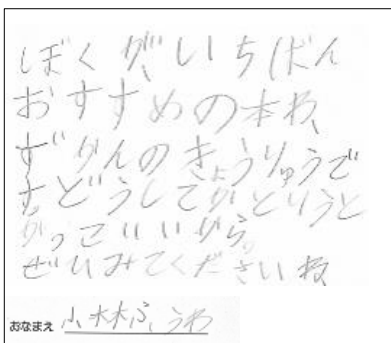 ぼくが、いちばん
おすすめの本わ、
ずかんのきょうりゅうで
す。どうしてかとゆうと
かっこいいから。
ぜひみてくださいね
おなまえ 小林ふ